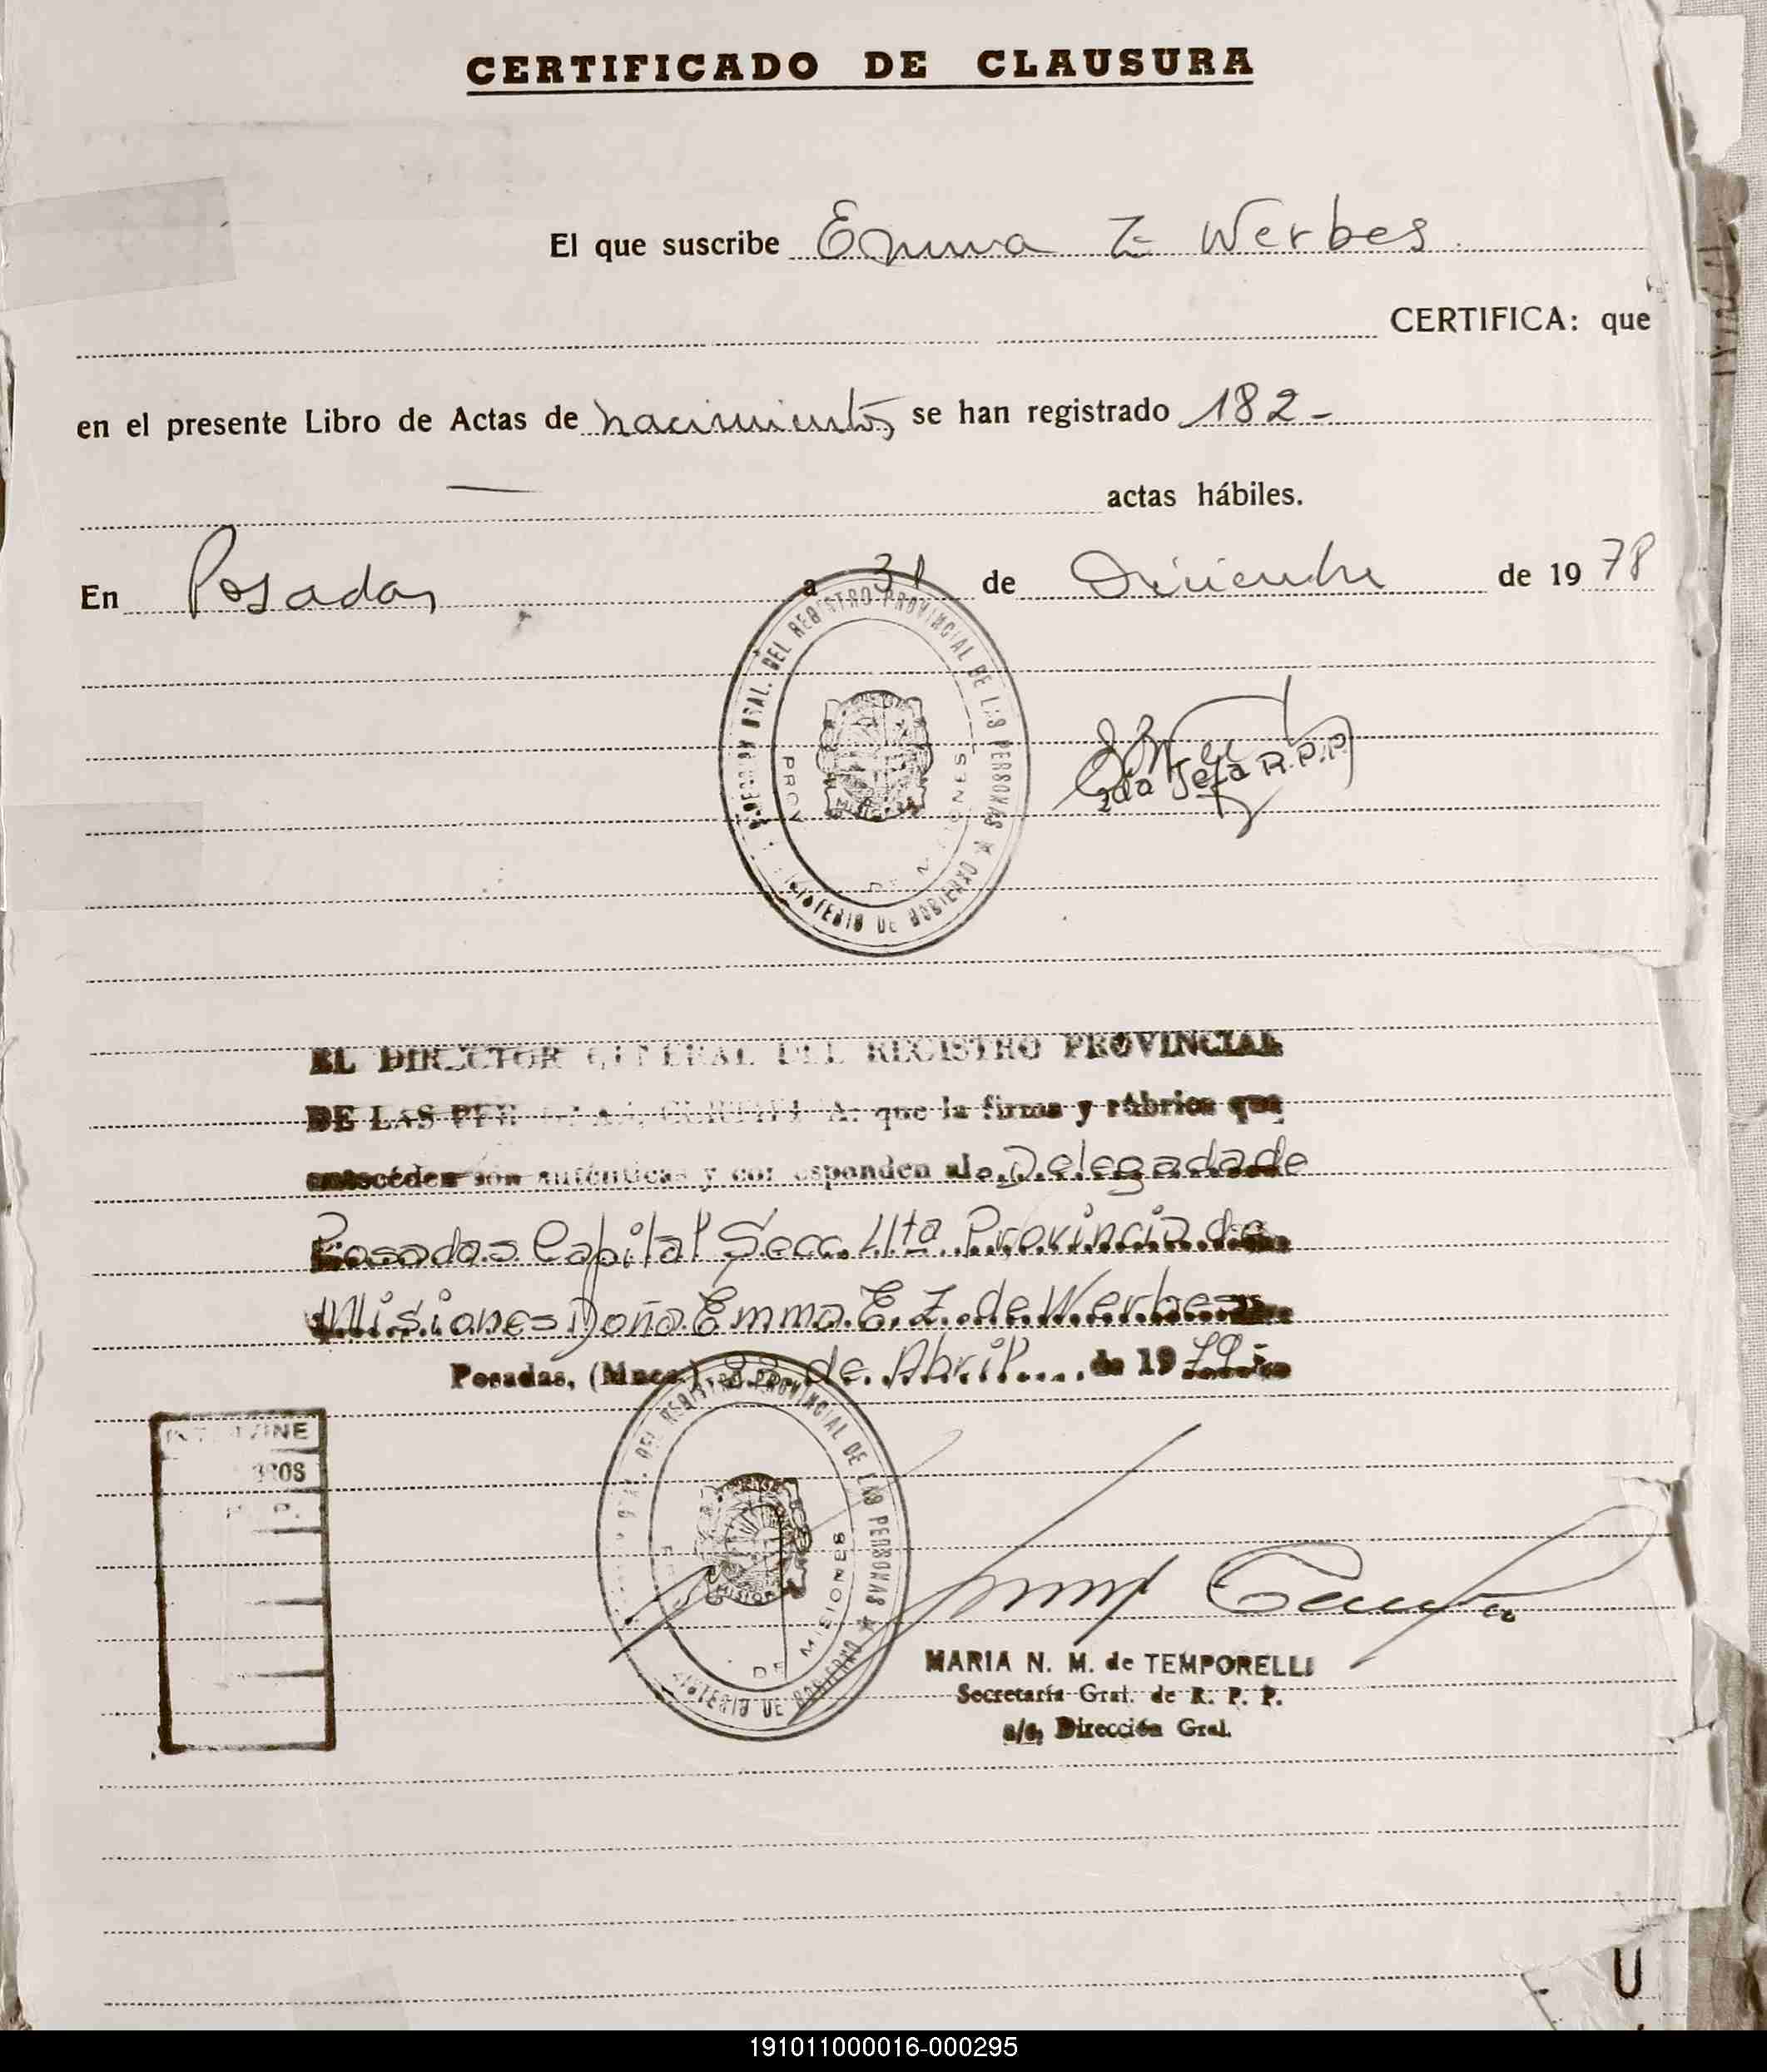 CERTIFICADO DE CLAUSURA
El que suscribe Emma Z. Werbes
CERTIFICA: que
en el presente Libro de Actas de nacimientos se han registrado 182 -
actas hábiles.
En Posadas a 31 de Diciembre de 1978
DEL REGISTRO PROVINCIAL DE LAS PERSONAS ★
MINISTERIO DE GOBIERNO
PROV DE MISIONES
2da Jefa R.P.P.
EL DIRECTOR GENERAL DEL REGISTRO PROVINCIAL
DE LAS PERSONAS, CERTIFICA: que la firma y rúbrica que
anteceden son auténticas y corresponden al a Delegada de
Posadas Capital Secc. 4ta Provincia de
Misiones Doña Emma E. Z. de Werbes
Posadas, (Mnes.) de Abril de 1979
DEL REGISTRO PROVINCIAL DE LAS PERSONAS ★
MINISTERIO DE GOBIERNO
DE MISIONES
MARIA N. M. de TEMPORELLI
Secretaria Gral. de R. P. P.
a/c, Dirección Gral.
U
191011000016-000295